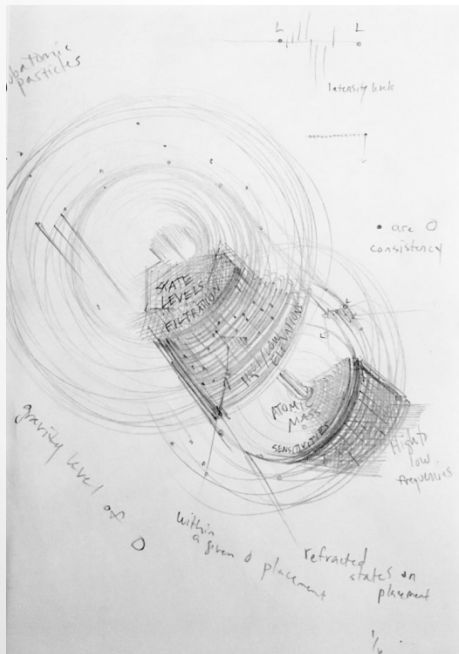 L L
subatomic
particles
Intensity levels
• are 0
consistency
STATE
LEVELS
FILTRATION
High/low
ELEVATIONS
ATOMIC
MASS
SENSITIVITIES
High to
low
frequencies
gravity level of 0
within
a given 0 placement
refracted
states on
placement